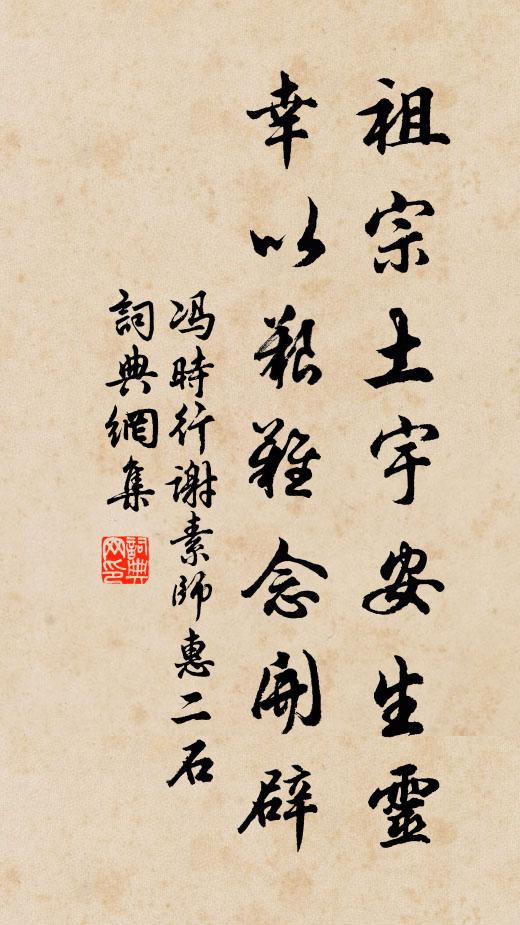 祖宗土宇安生靈
幸以艱難念開辟
冯時行謝素師惠二石
詞典網集
詞典網印